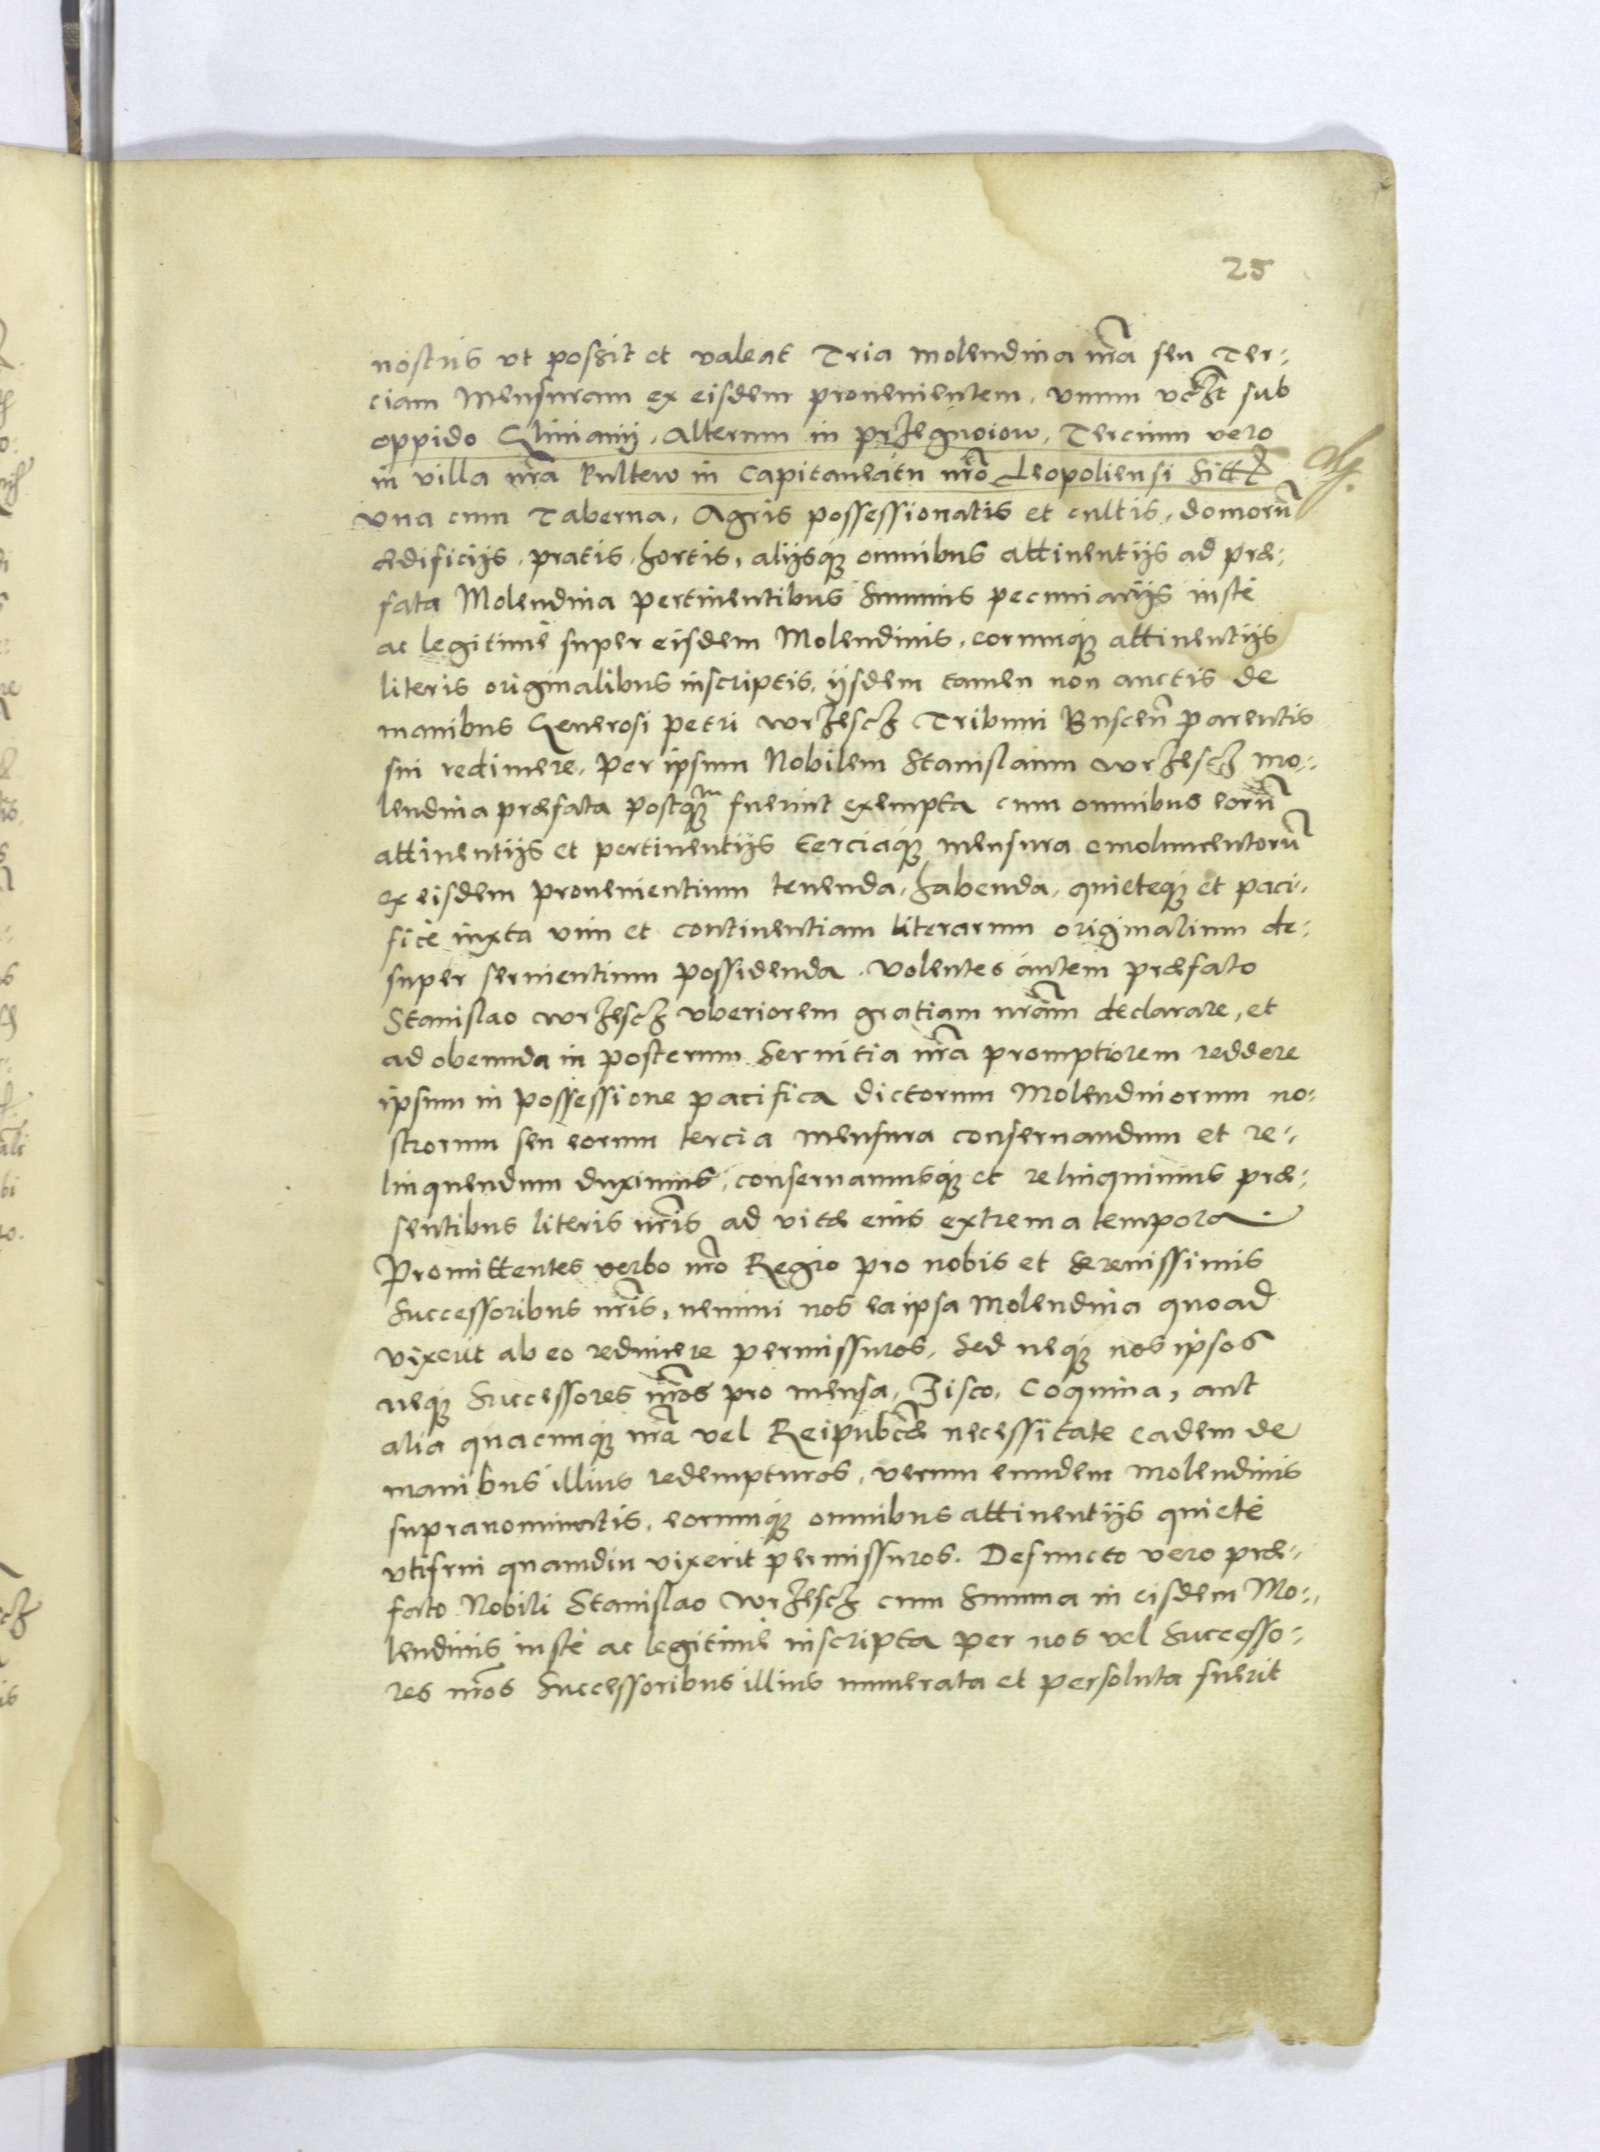 25
nostris vt possit et valeat Tria molendina nrã seu Ter-
ciam Mensuram ex eisdem prouenientem, vnum sub
oppido Glinianij, Alterum in przegnoiow, Tercium vero
in villa nrã Kultew in Capitaneatu nrõ Leopoliensi
vna cum Taberna, Agris possessionatis et cultis, domorũ
ædificijs, pratis, hortis, alijsq; omnibus attinentijs ad præ-
fata Molendina pertinentibus Summis pecuniarijs iustè
ac legitimè super eisdem Molendinis, eorumq; attinentijs
literis originalibus inscriptis, ijsdem tamen non auctis de
manibus Generosi petri wrzescz Tribuni Buscen̄ parentis
sui redimere, per ipsum Nobilem Stanislaum wrzescz mo-
lendina præfata postq;m fuerint exempta cum omnibus eorũ
attinentijs et pertinentijs terciaq; mensura emolumentorũ
ex eisdem prouenientium tenenda, habenda, quieteq; et paci-
ficè iuxta vim et continentiam literarum originalium de-
super seruientium possidenda. Volentes autem præfato
Stanislao wrzescz vberiorem gratiam nrãm declarare, et
ad obeunda in posterum Seruitia nrã promptiorem reddere
ipsum in possessione pacifica dictorum Molendinorum no-
strorum seu eorum tercia mensura conseruandum et re-
linquendum duximus, conseruamusq; et relinquimus præ-
sentibus literis nrĩs ad vitæ eius extrema tempora.
Promittentes verbo nrõ Regio pro nobis et Serenissimis
Successoribus nrĩs, nemini nos ea ipsa Molendina quoad
vixerit ab eo redimere permissuros, Sed neq; nos ipsos
neq; Successores nrõs pro mensa, Fisco, Coquina, aut
alia quacunq; nrã vel Reipubcæ necessitate eadem de
manibus illius redempturos, verum eundem Molendinis
supranominatis, eorumq; omnibus attinentijs quietè
vtifrui quamdiu vixerit permissuros. Defuncto vero præ-
fato Nobili Stanislao wrzescz cum Summa in eisdem Mo-
lendinis iustè ac legitimè inscripta per nos vel Successo-
res nrõs Successoribus illius numerata et persoluta fuerit